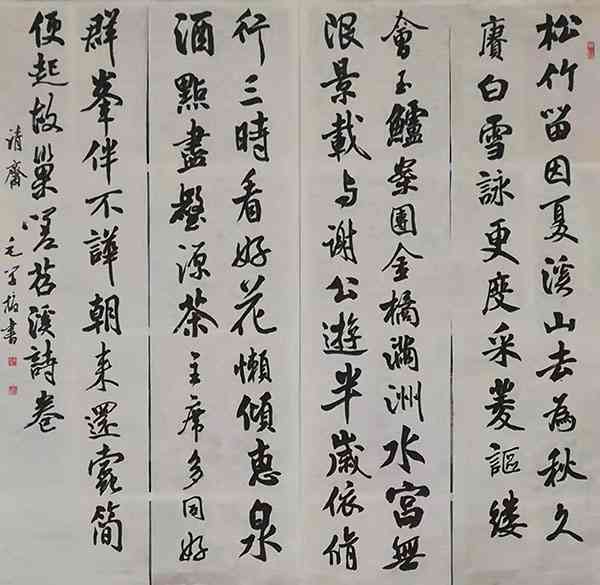 松竹留因夏溪山去為秋久
賡白雪詠更度采菱謳縷
會玉鱸案團金橘滿洲水宮無
限景載与謝公遊半歲依脩
竹三時看好花懶傾惠泉
酒點盡壑源茶主席多同好
群峯伴不譁朝来還蠹簡
便起故巢嗟苕溪詩卷
清齋 毛 書